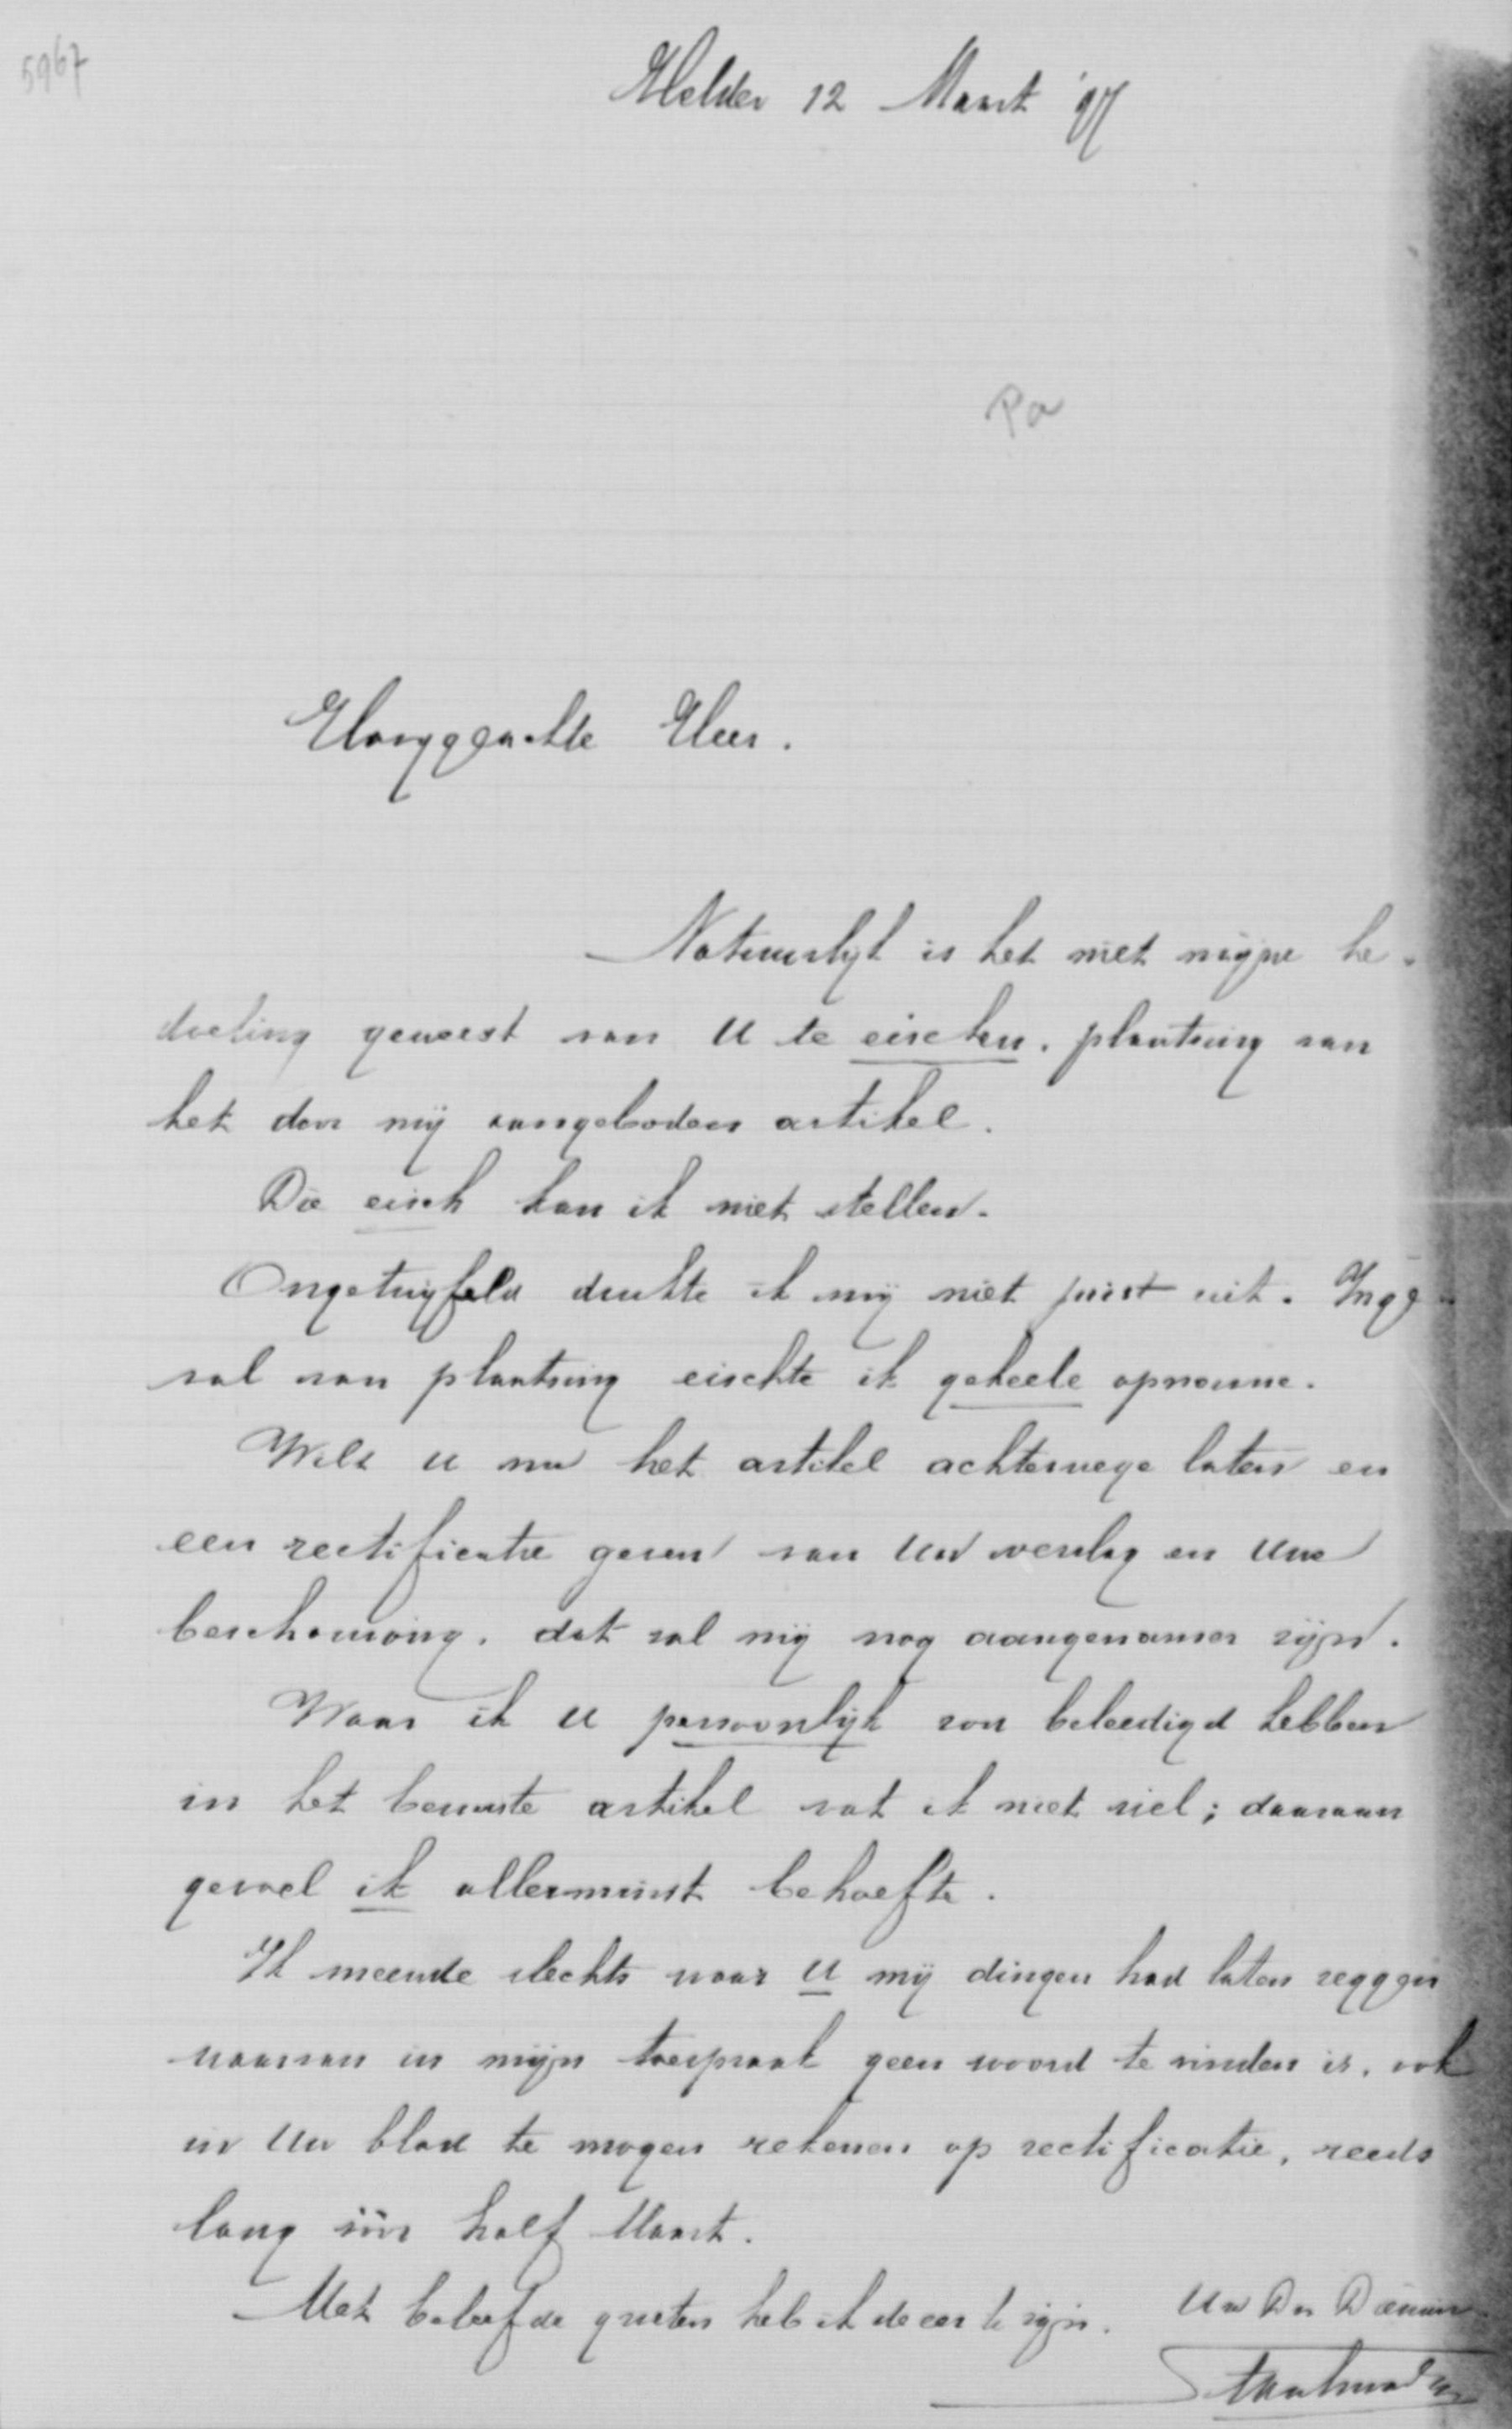 5967
Helder 12 Maart '97
Pa
Hooggeachte Heer.
Natuurlijk is het niet mijne be-
doeling geweest van U te eischen. plaatsing van
het door mij aangeboden artikel.
Die eisch kan ik niet stellen.
Ongetwijfeld drukte ik mij niet juist uit. Inge-
val van plaatsing eischte ik geheele opname.
Wilt u nu het artikel achterwege laten en
een rectificatie geven van Uw verslag en Uwe
beschouwing. dat zal mij nog aangenamer zijn.
Waar ik U persoonlijk zou beleedigd hebben
in het bewuste artikel vat ik niet; daaraan
gevoel ik allerminst behoefte.
Ik meende slechts waar U mij dingen had laten zeggen
waarvan in mijn toespraak geen woord te vinden is. ook
in Uw blad te mogen rekenen op rectificatie, reeds
lang vóór half Maart.
Met beleefde groeten heb ik de eer te zijn.
Uw Dw Dienaar